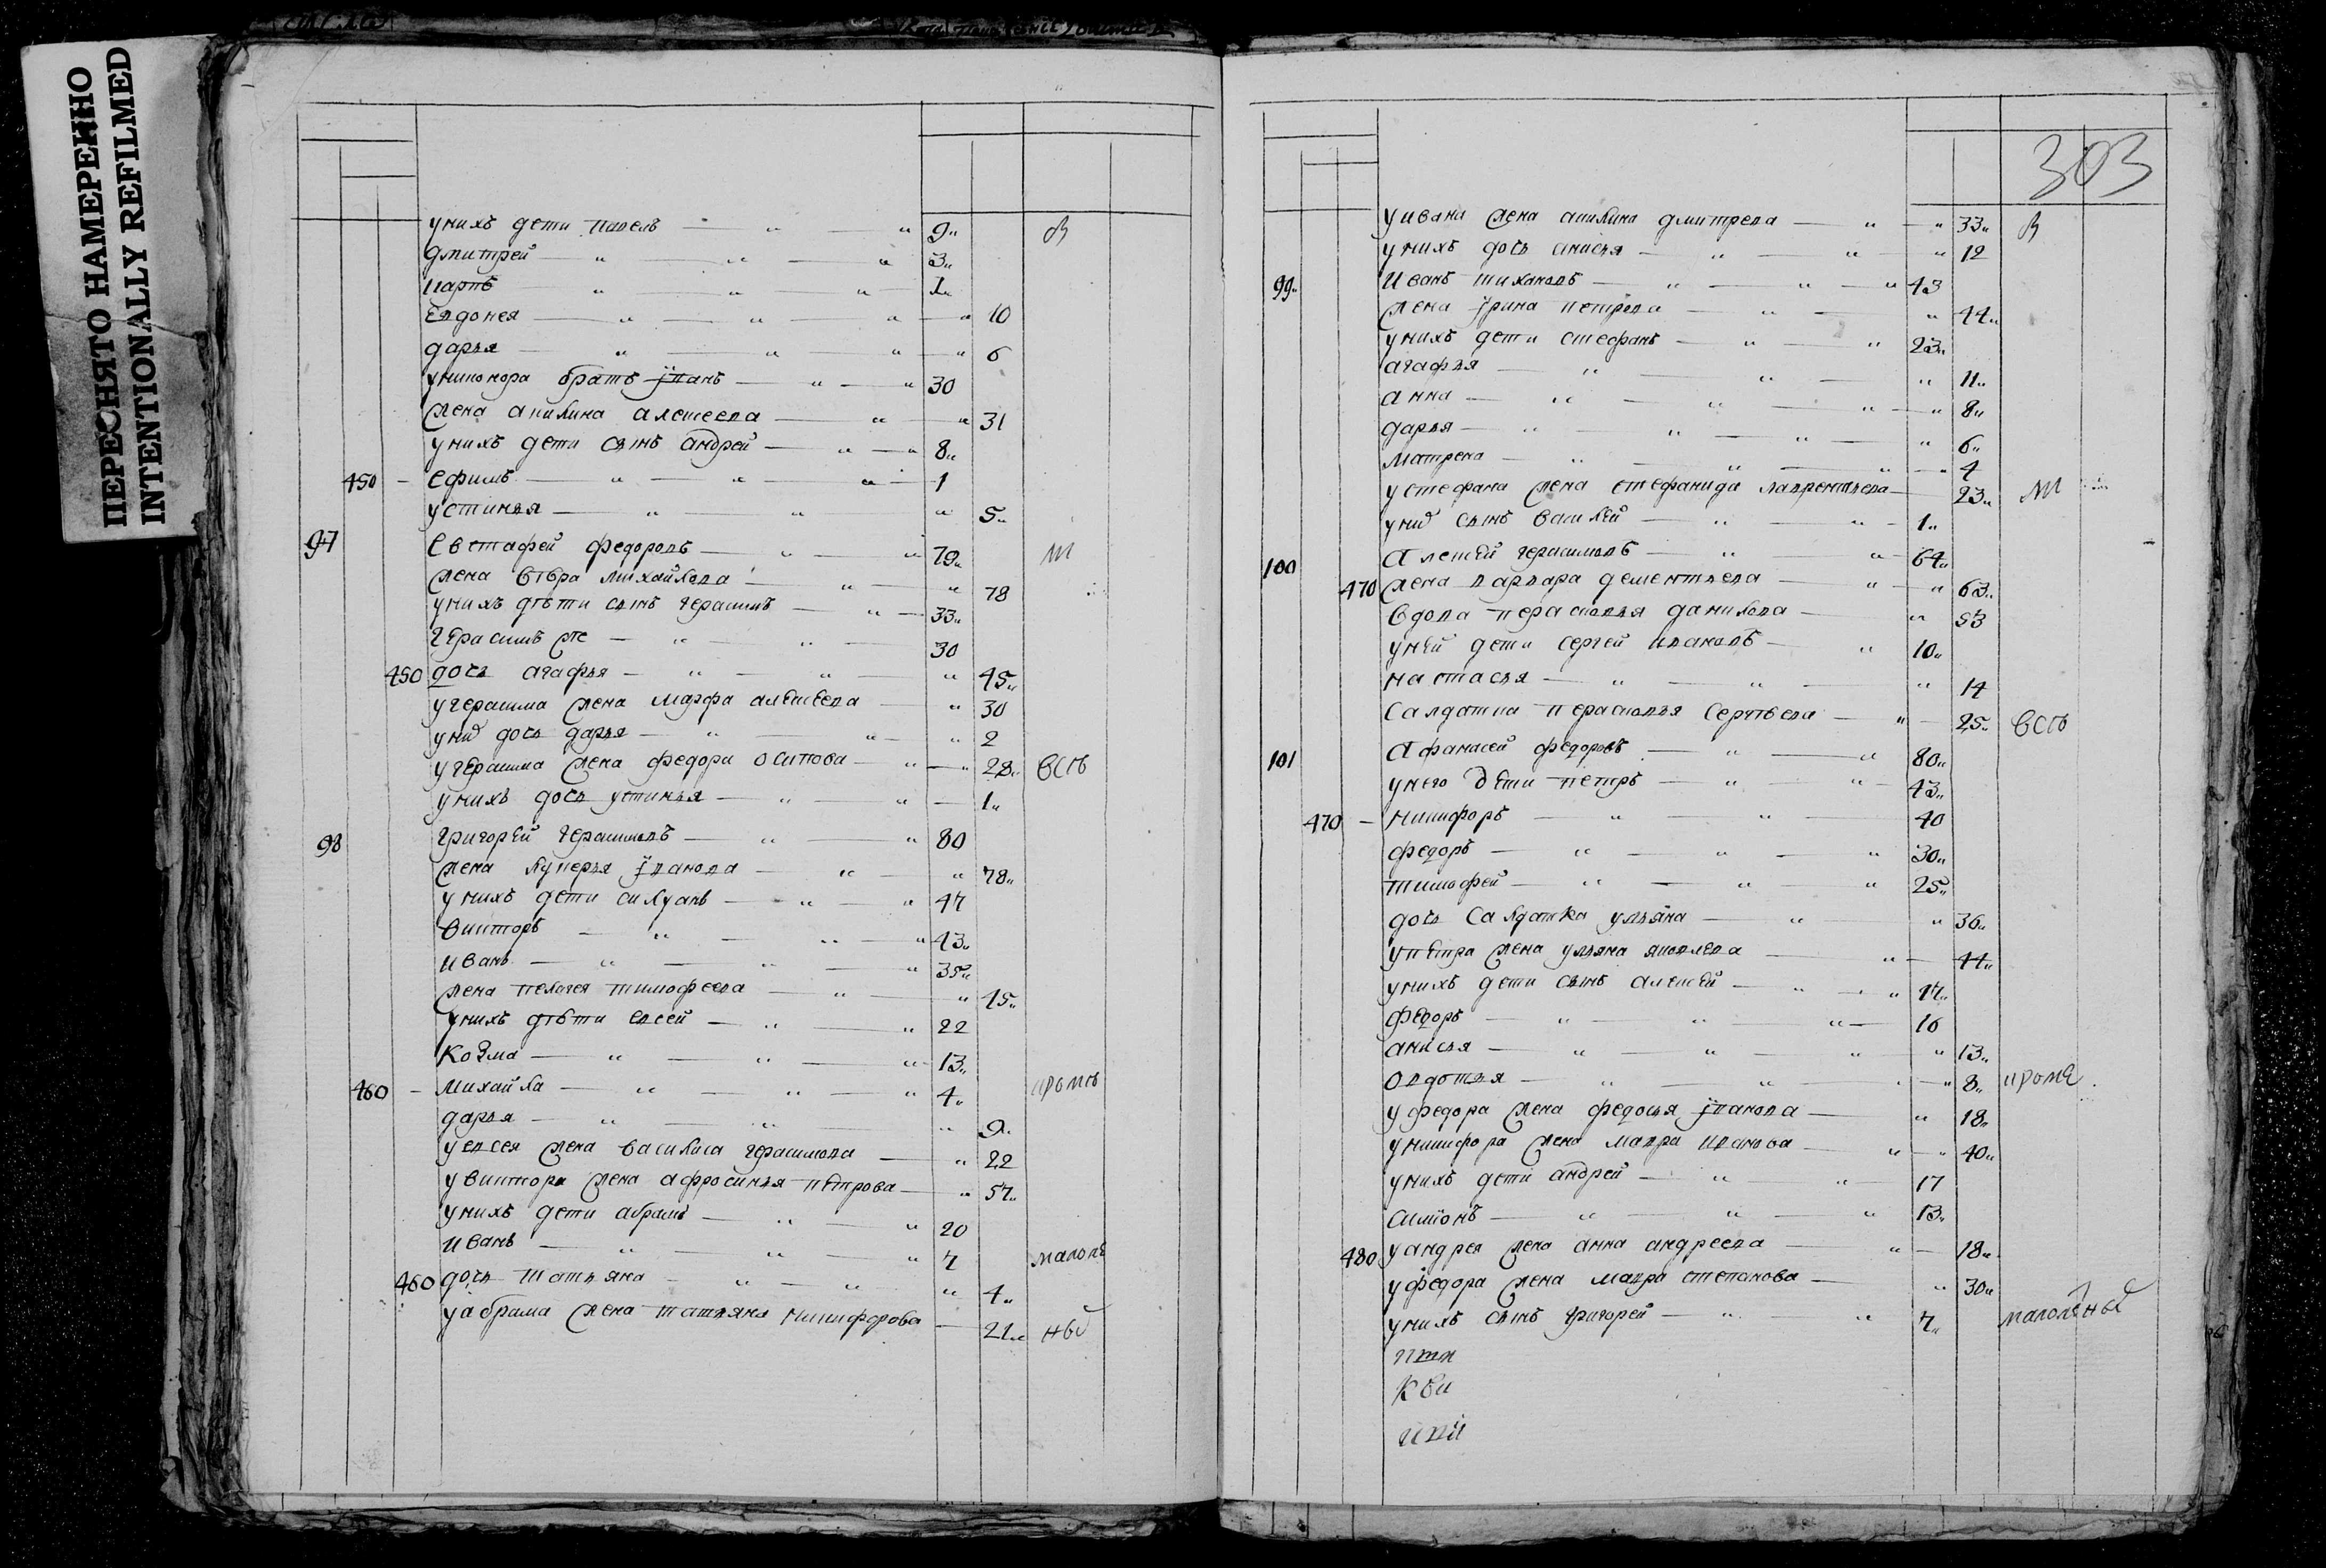 ПЕРЕСНЯТО НАМЕРЕННО
INTENTIONALLY REFILMED
унихъ дети павелъ 9 в
дмитрей 3
карпъ 1
Евдокея 10
дарья 6
братъ іванъ 30
жена акилина алексеева 31
унихъ дети сынъ андрей 8
450 Ефимъ 1
устинья 5
97 Евстафей федоровъ 70
жена вѣра михайлова 78
унихъ дѣти сынъ герасимъ 33
герасимъ же 30
450 дочь агафья 45
угерасима жена марфа алексеева 30
дочь дарья 2
угерасима жена федора осипова 28 всѣ
унихъ дочь устинья 1
98 григорей герасимовъ 80
жена лукерья іванова 78
унихъ дети силуанъ 47
викторъ 43
иванъ 35
жена пелагея тимофеева 45
унихъ дѣти евсей 22
козма 13
460 михайла 4 кромѣ
дарья 9
уевсея жена василиса герасимова 22
увиктора жена афросинья петрова 57
унихъ дети абрамъ 20
иванъ 7 малолѣ
460 дочь татьяна 4
уабрама жена татьяна никифорова 21 ны
303
уивана жена акилина дмитрева 33 в
унихъ дочь анисья 12
99 иванъ тихановъ 43
жена ірина петрова 44
унихъ дети стефанъ 23
агафья 11
анна 8
дарья 6
матрена 4
устефана жена стефанида лаврентьева 23
сынъ василей 1
100 алексей герасимовъ 64
470 жена варвара дементьева 63
вдова парасковья данилова 53
уней дети сергей ивановъ 10
настасья 14
салдатка парасковья сергѣева 25 всѣ
101 афанасей федоровъ 80
унего дети петръ 43
470 никифоръ 40
федоръ 30
тимофей 25
дочь салдатка ульяна 36
упетра жена ульяна яковлева 44
унихъ дети сынъ алексей 17
федоръ 16
анисья 13
овдотья 8 кроме
уфедора жена федосья іванова 18
уникифора жена мавра иванова 40
унихъ дети андрей 17
симіонъ 13
480 уандрея жена анна андреева 18
уфедора жена мавра степанова 30
унихъ сынъ григорей 7 малолѣны